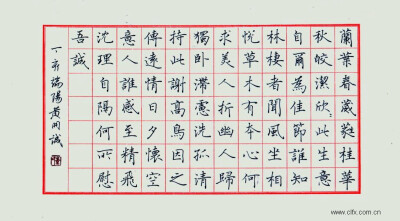 蘭葉春葳蕤桂華
秋皎潔欣〻此生意
自爾為佳節誰知
林棲者聞風坐相
悅草木有本心何
求美人折幽人歸
獨卧滯慮洗孤清
持此謝高鳥因之
傳遠情日夕懷空
意人誰感至精飛
沈理自隔何所慰
吾誠
丁亥端陽黃誠
www.clfx.com.cn